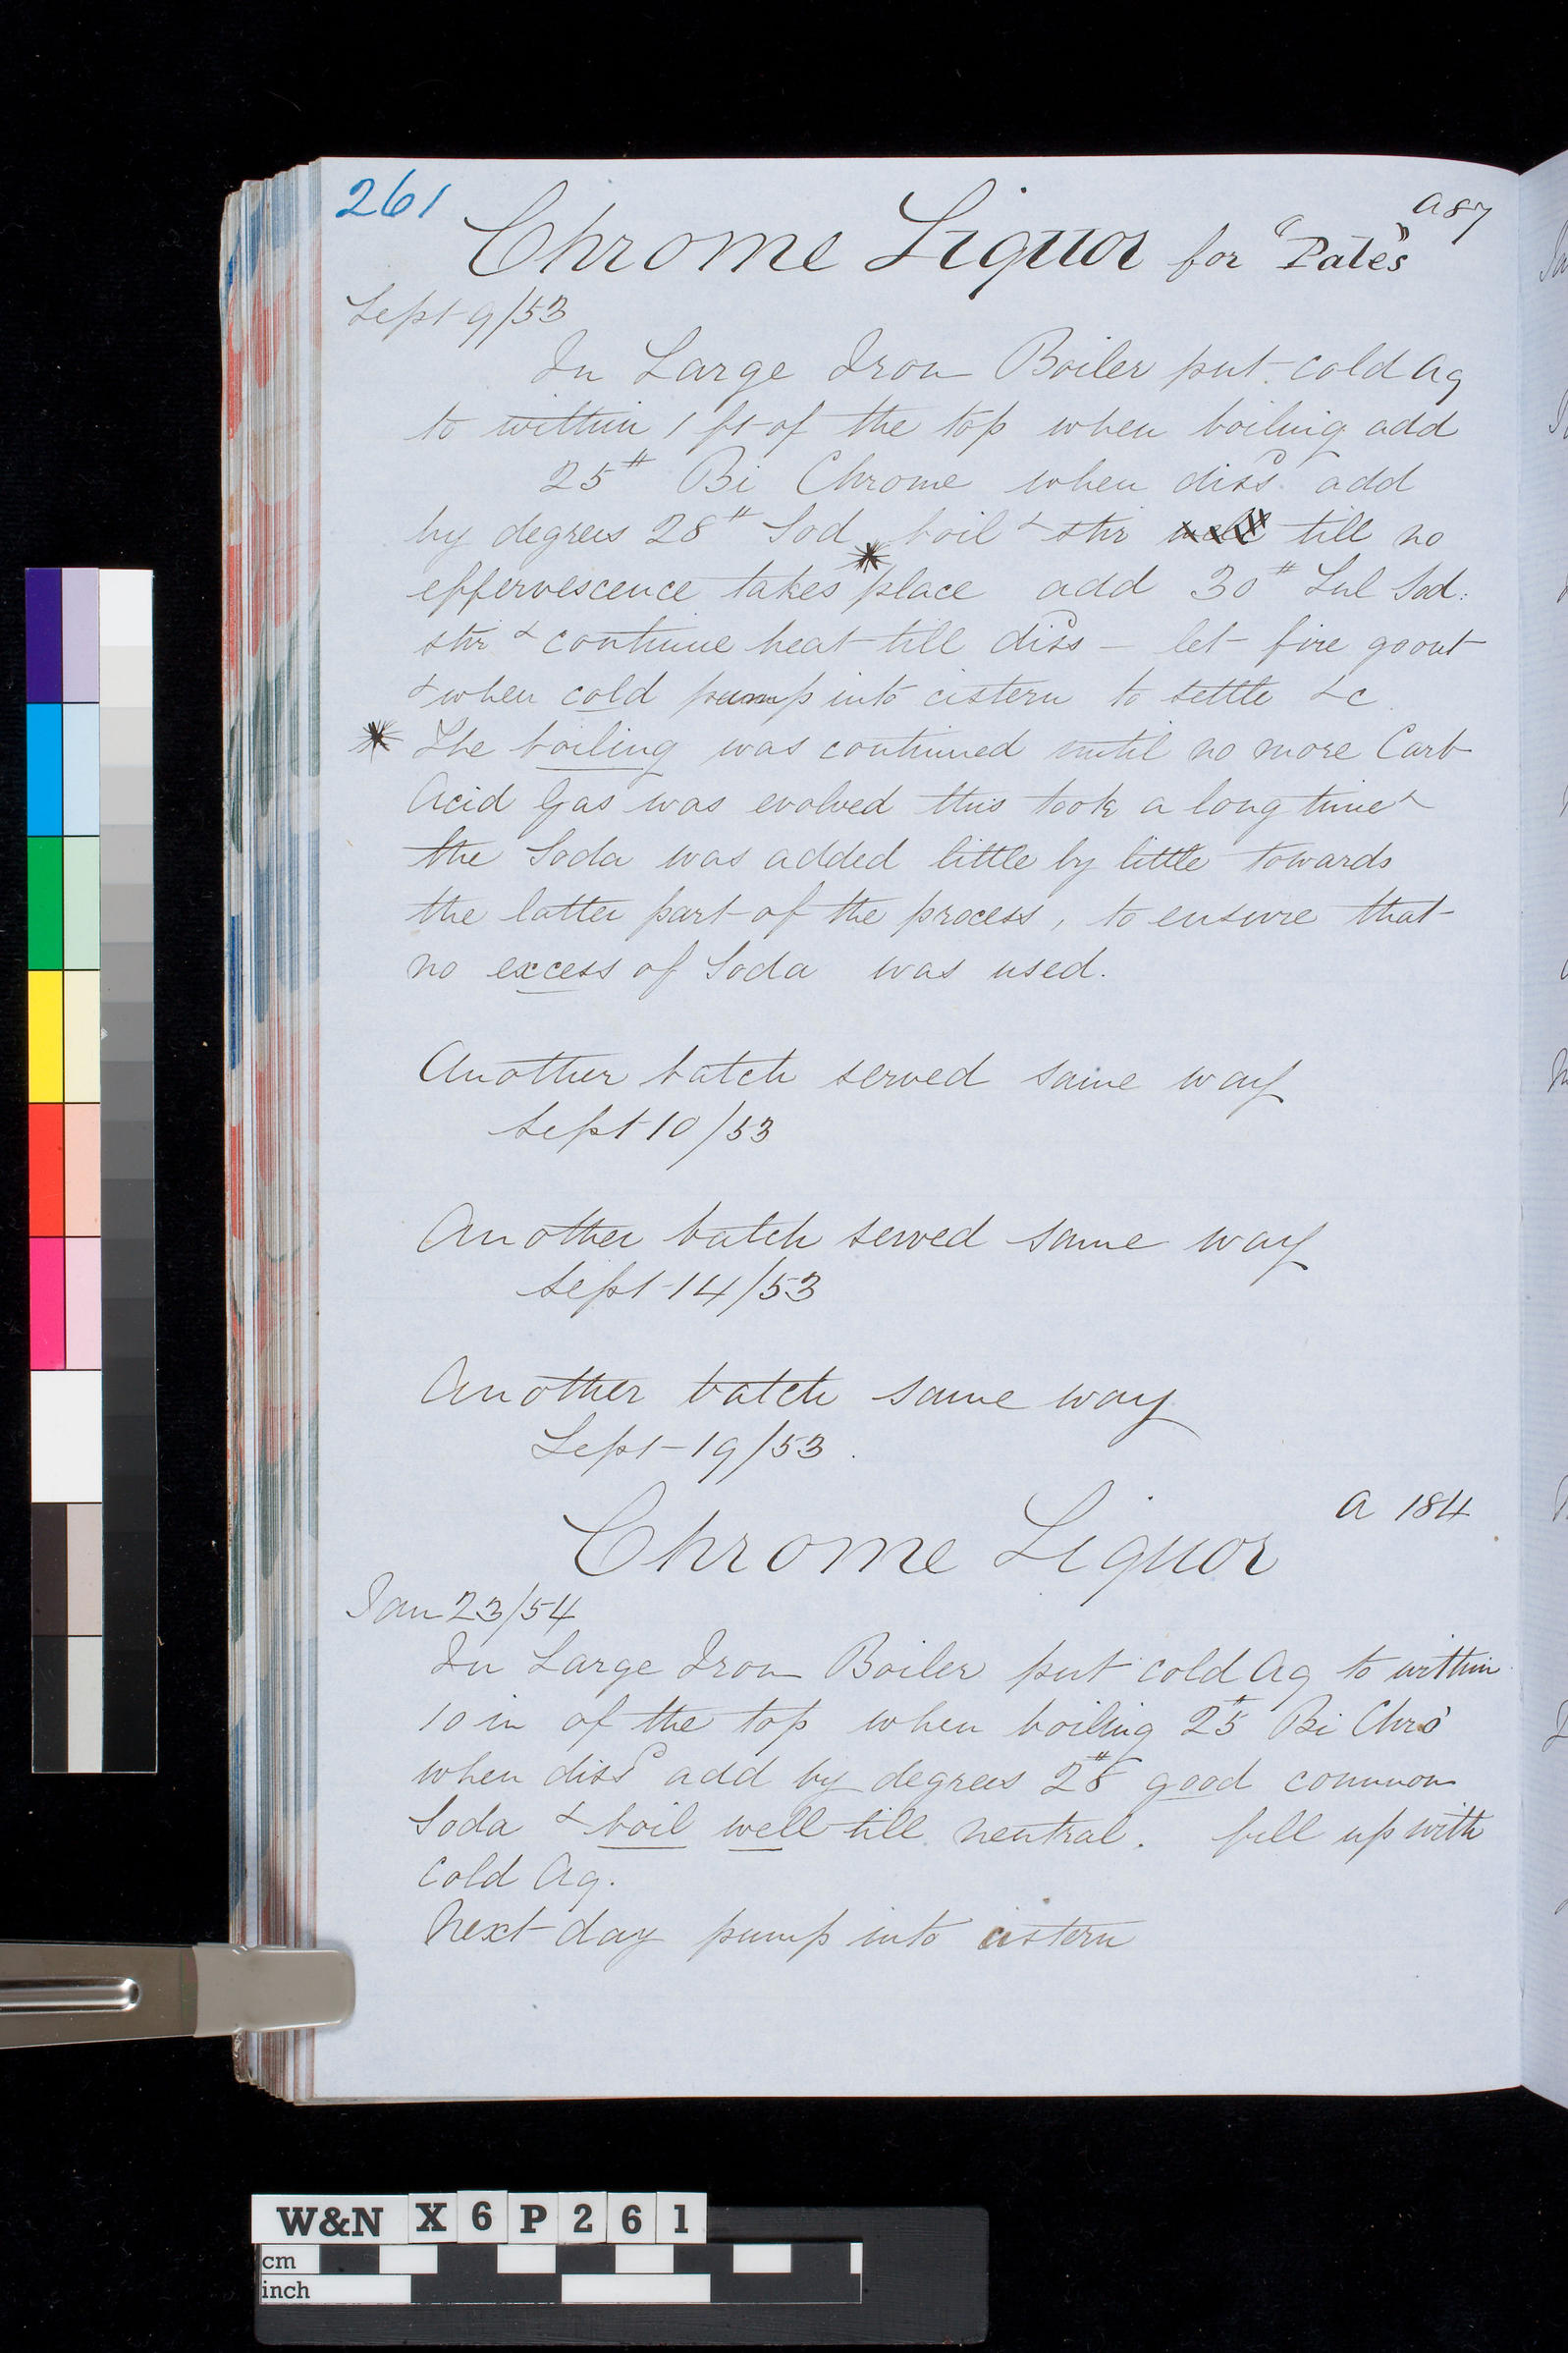 261
Chrome Liquor for "Pale's" A 87
Sept 9/53
In Large Iron Boiler put cold Aq
to within 1 ft of the top when boiling add
25# Bi Chrome when dissd add
by degrees 28# Sod, boil & stir well till no
effervescence takes * place add 30# Sul Sod:
stir & continue heat till dissd – let fire go out
& when cold pump into cistern to settle &c
* The boiling was continued until no more Carb
Acid Gas was evolved this took a long time &
the Soda was added little by little towards
the latter part of the process, to ensure that
no excess of Soda was used.
Another batch served same way
Sept 10/53
Another batch served same way
Sept 14/53
Another batch same way
Sept 19/53.
Chrome Liquor A 184
Jan 23/54
In Large Iron Boiler put cold Aq to within
10 in of the top when boiling 25# Bi Chro
when dissd add by degrees 28# good common
Soda & boil well till neutral. fill up with
cold Aq.
Next day pump into cistern
W&N X 6 P 2 6 1
cm
inch